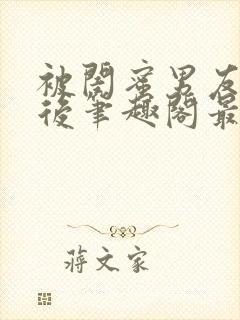 被閨蜜男友
後筆趣閣最
蔣文家